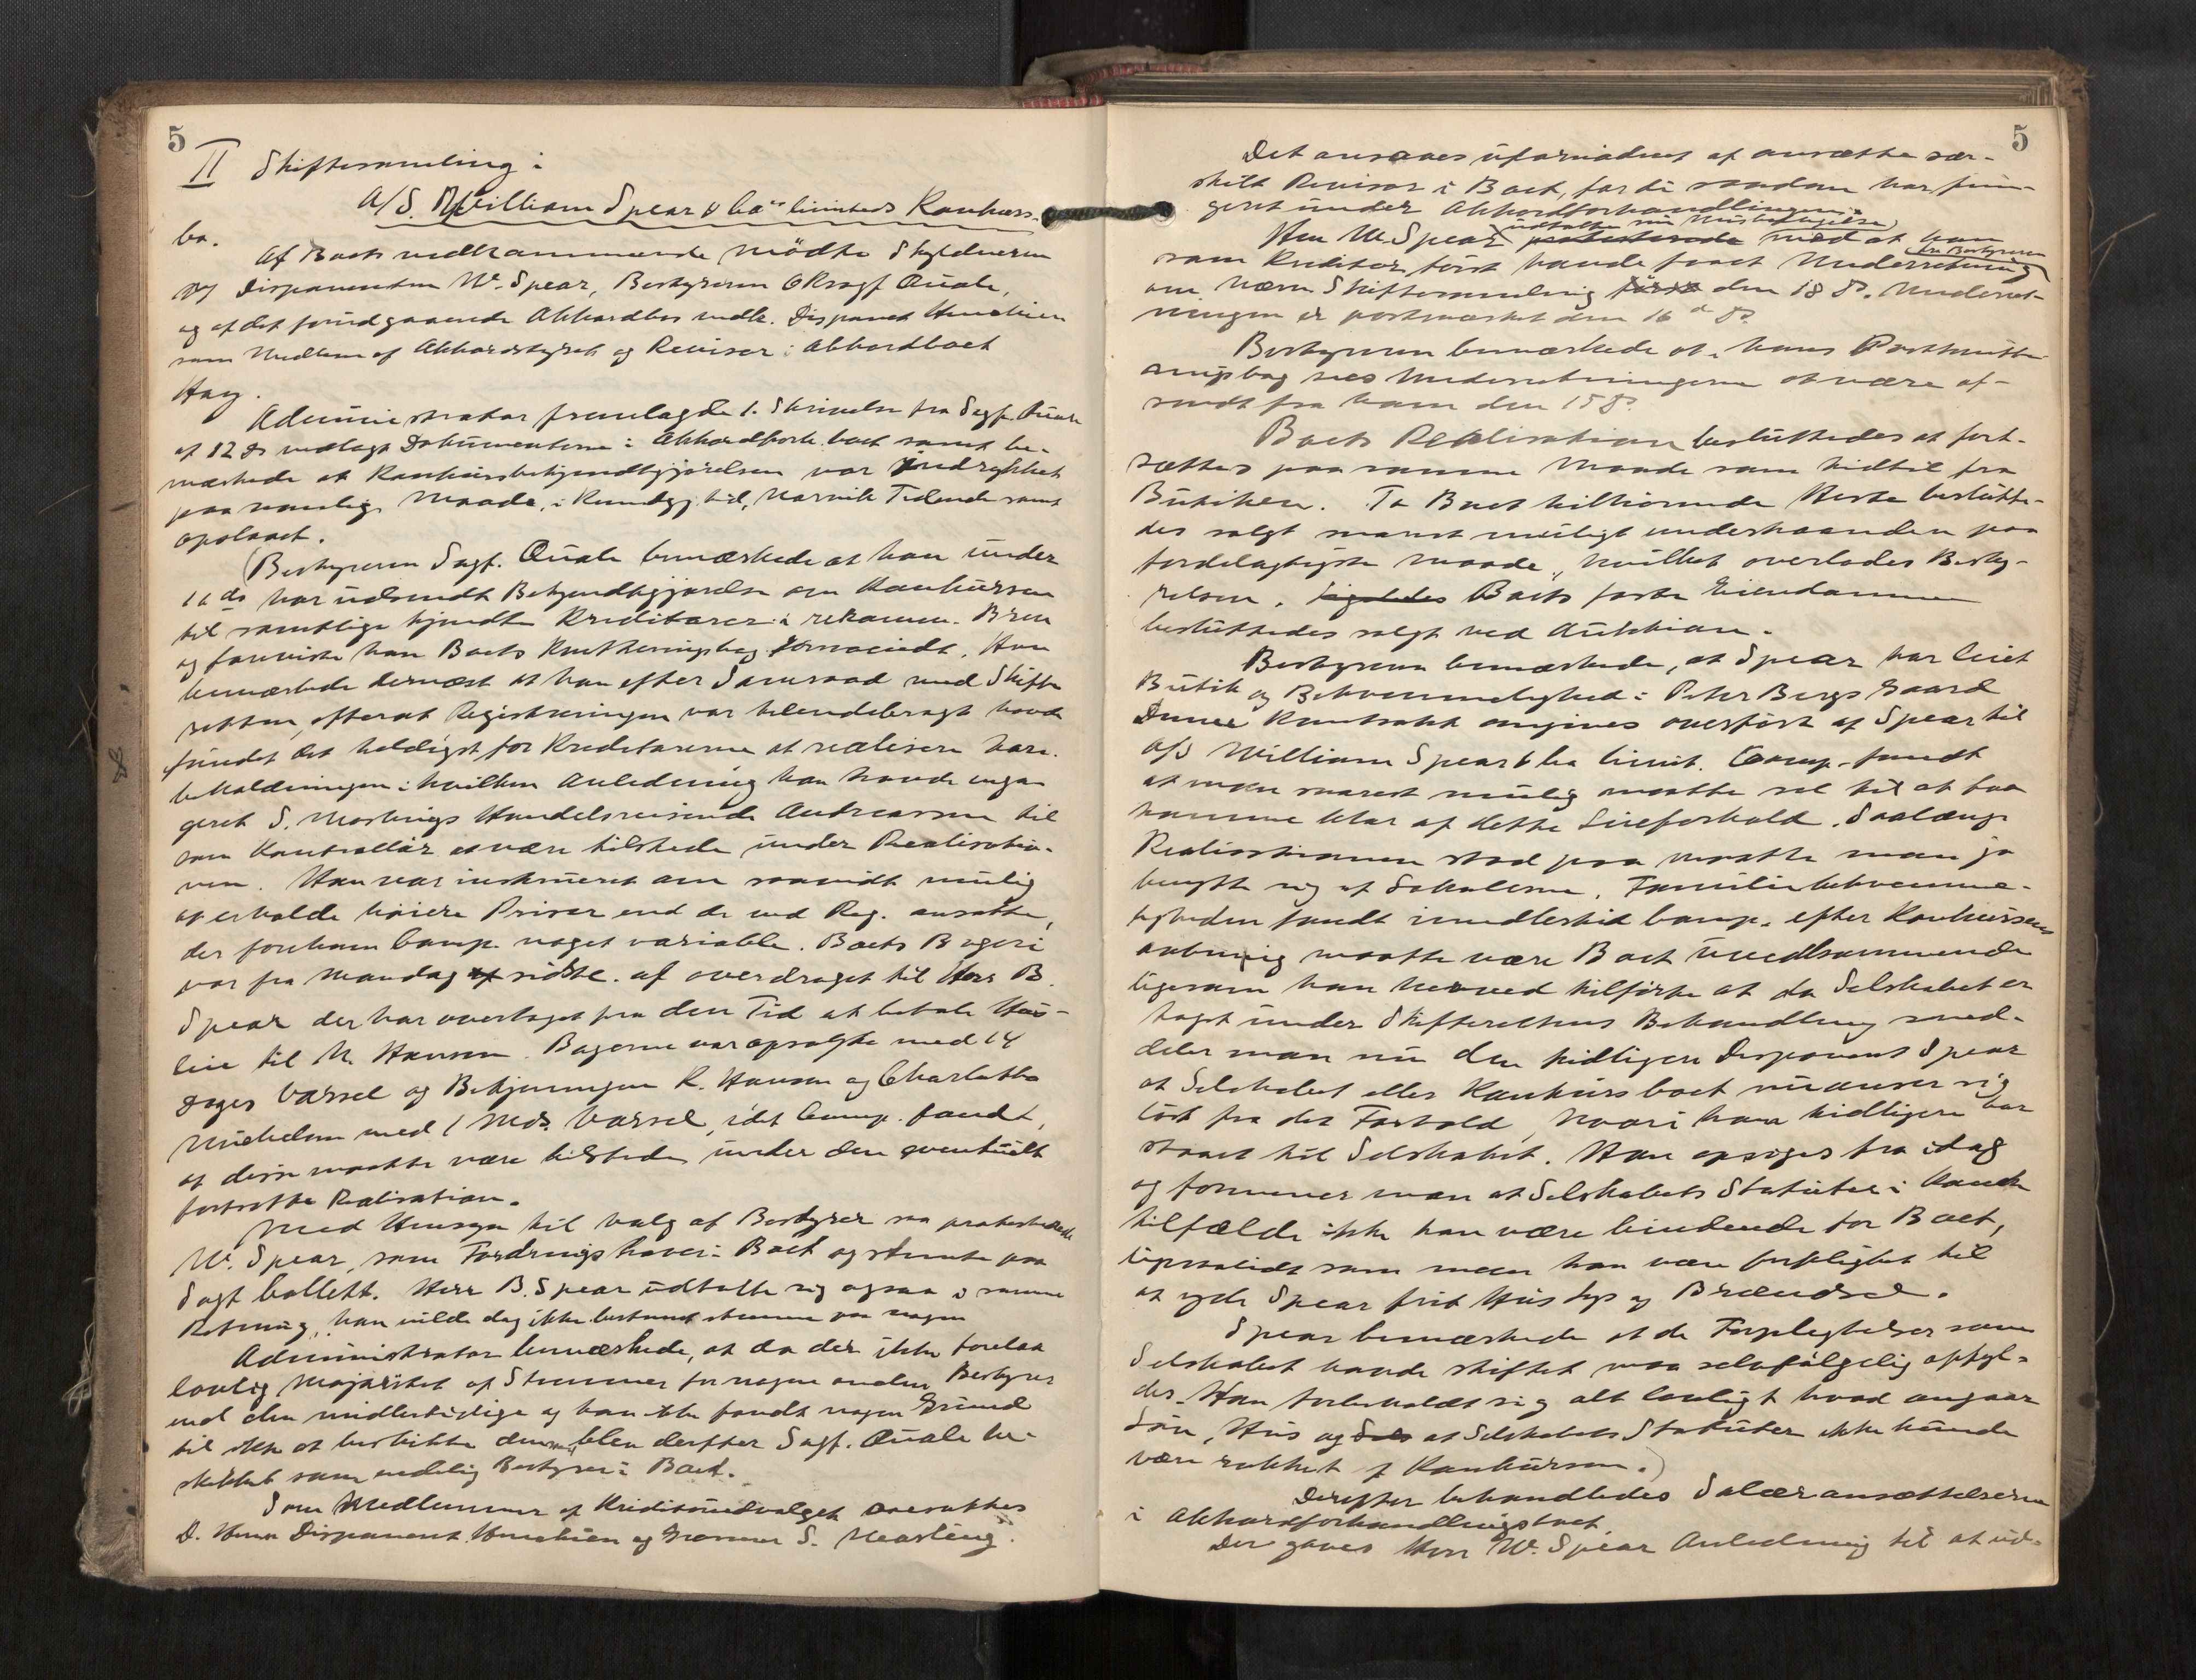 5
II Skiftesamling i
A/S. William Spear & Co's limiteds Konkurs-
bo.
Af Boets vedkommende mödte Skyldneren
ved Disponenten W. Spear, Bestyreren O Krogf Quale,
og af det forudgaaende Akkordbos vedk. Disponent
som Medlem af Akkordstyret og Revisor i Akkordboet
Hay.
Administrator fremlagde 1. Skrivelse fra Sagf. Quale
af 12 ds vedlagt Dokumenterne i Akkordforh. boet samt be-
mærkede at Konkursbekjendtgjörelsen var indrykket
paa vanlig Maade, i Kundgj. tid, Narvik Tidende samt
opslaaet.
(Bestyreren Sagf. Quale bemærkede at han under
ds har udsendt Bekjendtgjörelse om Konkursen
til samtlige kjendte Kreditorer i rekomm. Brev
og foreviste han Boets Kvitteringsbog forsaavidt. Han
bemærkede dernæst at han efter Samraad med Skifte
retten, efterat Registreringen var tilendebragt havde
fundet det heldigst for Kreditorerne at realisere Vare-
beholdningen i hvilken Anledning han havde enga-
geret S. Mostings Handelsreisende Andreassen til
som Kontrollör at være tilstede under Realisatio-
nen. Han var instrueret om saavidt mulig
at erholde höiere Priser end de ved Reg. ansatte,
der forekom Comp. noget variable. Boets Bageri
var fra Mandag sidstl. af overdraget til Herr B.
Spear der har overtaget fra den Tid at betale Hus-
leie til N. Hansen. Bagerne var opsagte med 14
Dages Varsel og Betjeningen R. Hansen og Charlotte
Michelsen med 1 Mds. Varsel, idet Comp. fandt,
at disse maatte være tilstede under den eventuelt
fortsatte Realisation.
Med Hensyn til Valg af Bestyrer saa protesterede
W. Spear, som Fordringshaver i Boet og stemte paa
Sagf Collett. Herr B. Spear udtalte sig ogsaa i samme
Retning, han vilde dog ikke bestemt stemme paa nogen
Administrator bemærkede, at da der ikke forelaa
lovlig Majoritet af Stemmer for nogen anden Bestyrer
end den midlertidige og han ikke fandt nogen Grund
til ikke at beskikke denne, blev derfter Sagf. Quale be-
skikket som endelig Bestyrer i Boet.
Som Medlemmer af Kreditorudvalget ansattes
D. Herrer Disponent og Grosserer S. Mosting.
5
Det ansaaes ufornödent at ansætte sær-
skilt Revisor i Boet, fordi saadan har fun-
geret under Akkordforhandlingen.
udtalte sin Misbilligelse
Herr W. Spear protesterede med at han
fra Bestyreren
som Kreditor först havde faaet Underretning
om nærv. Skiftesamling den 18 ds. Underret-
ningen er poststemplet den 16 ds.
Bestyreren bemærkede at i hans Postkvitte-
ringsbog sees Underretningerne at være af-
sendt fra ham den 15 ds.
Boets Realisation besluttedes at fort-
sættes paa samme Maade som hidtil fra
Butiken. To Boet tilhörende Heste beslutte-
des solgt snarest muligt underhaanden paa
fordelagtigste Maade, hvilket overlodes Besty-
relsen. Ligeledes Boets faste Eiendomme
besluttedes solgt ved Auktion.
Bestyreren bemærkede, at Spear har leiet
Butik og Bekvemmelighed i Peter Bergs Gaard
Denne Kontrakt angives overfört af Spear til
A/S William Spear & Co limit. Comp. fandt
at man snarest mulig maatte se til at faa
komme klar af dette Leieforhold. Saalænge
Realisationen stod paa maatte man jo
benytte sig af Lokalerne. Familiebekvemme-
ligheden fandt imidlertid Comp. efter Konkursens
aabning maatte være Boet uvedkommende
ligesom han herved tilförte at da Selskabet er
taget under Skifterettens Behandling med-
deler man nu den tidligere Disponent Spear
at Selskabet eller Konkursboet nu anser sig
löst fra det Forhold, hvori han tidligere har
staaet til Selskabet. Han opsiges fra idag
og formener man at Selskabets Statuter i
tilfælde ikke kan være bindende for Boet,
ligesaalidt som man kan være forpligtet til
at yde Spear frit Hus Lys og Brændsel.
Spear bemærkede at de Forpligtelser som
Selskabet havde stiftet maa selvfölgelig opfyl-
des. Han forbeholdt sig alt lovligt hvad angaar
Lön, Hus og at Selskabets Statuter ikke kunde
være rokket af Konkursen.)
Derefter behandledes Salæransættelserne
i Akkordforhandlingsboet.
Der gaves Herr W. Spear Anledning til at ud-